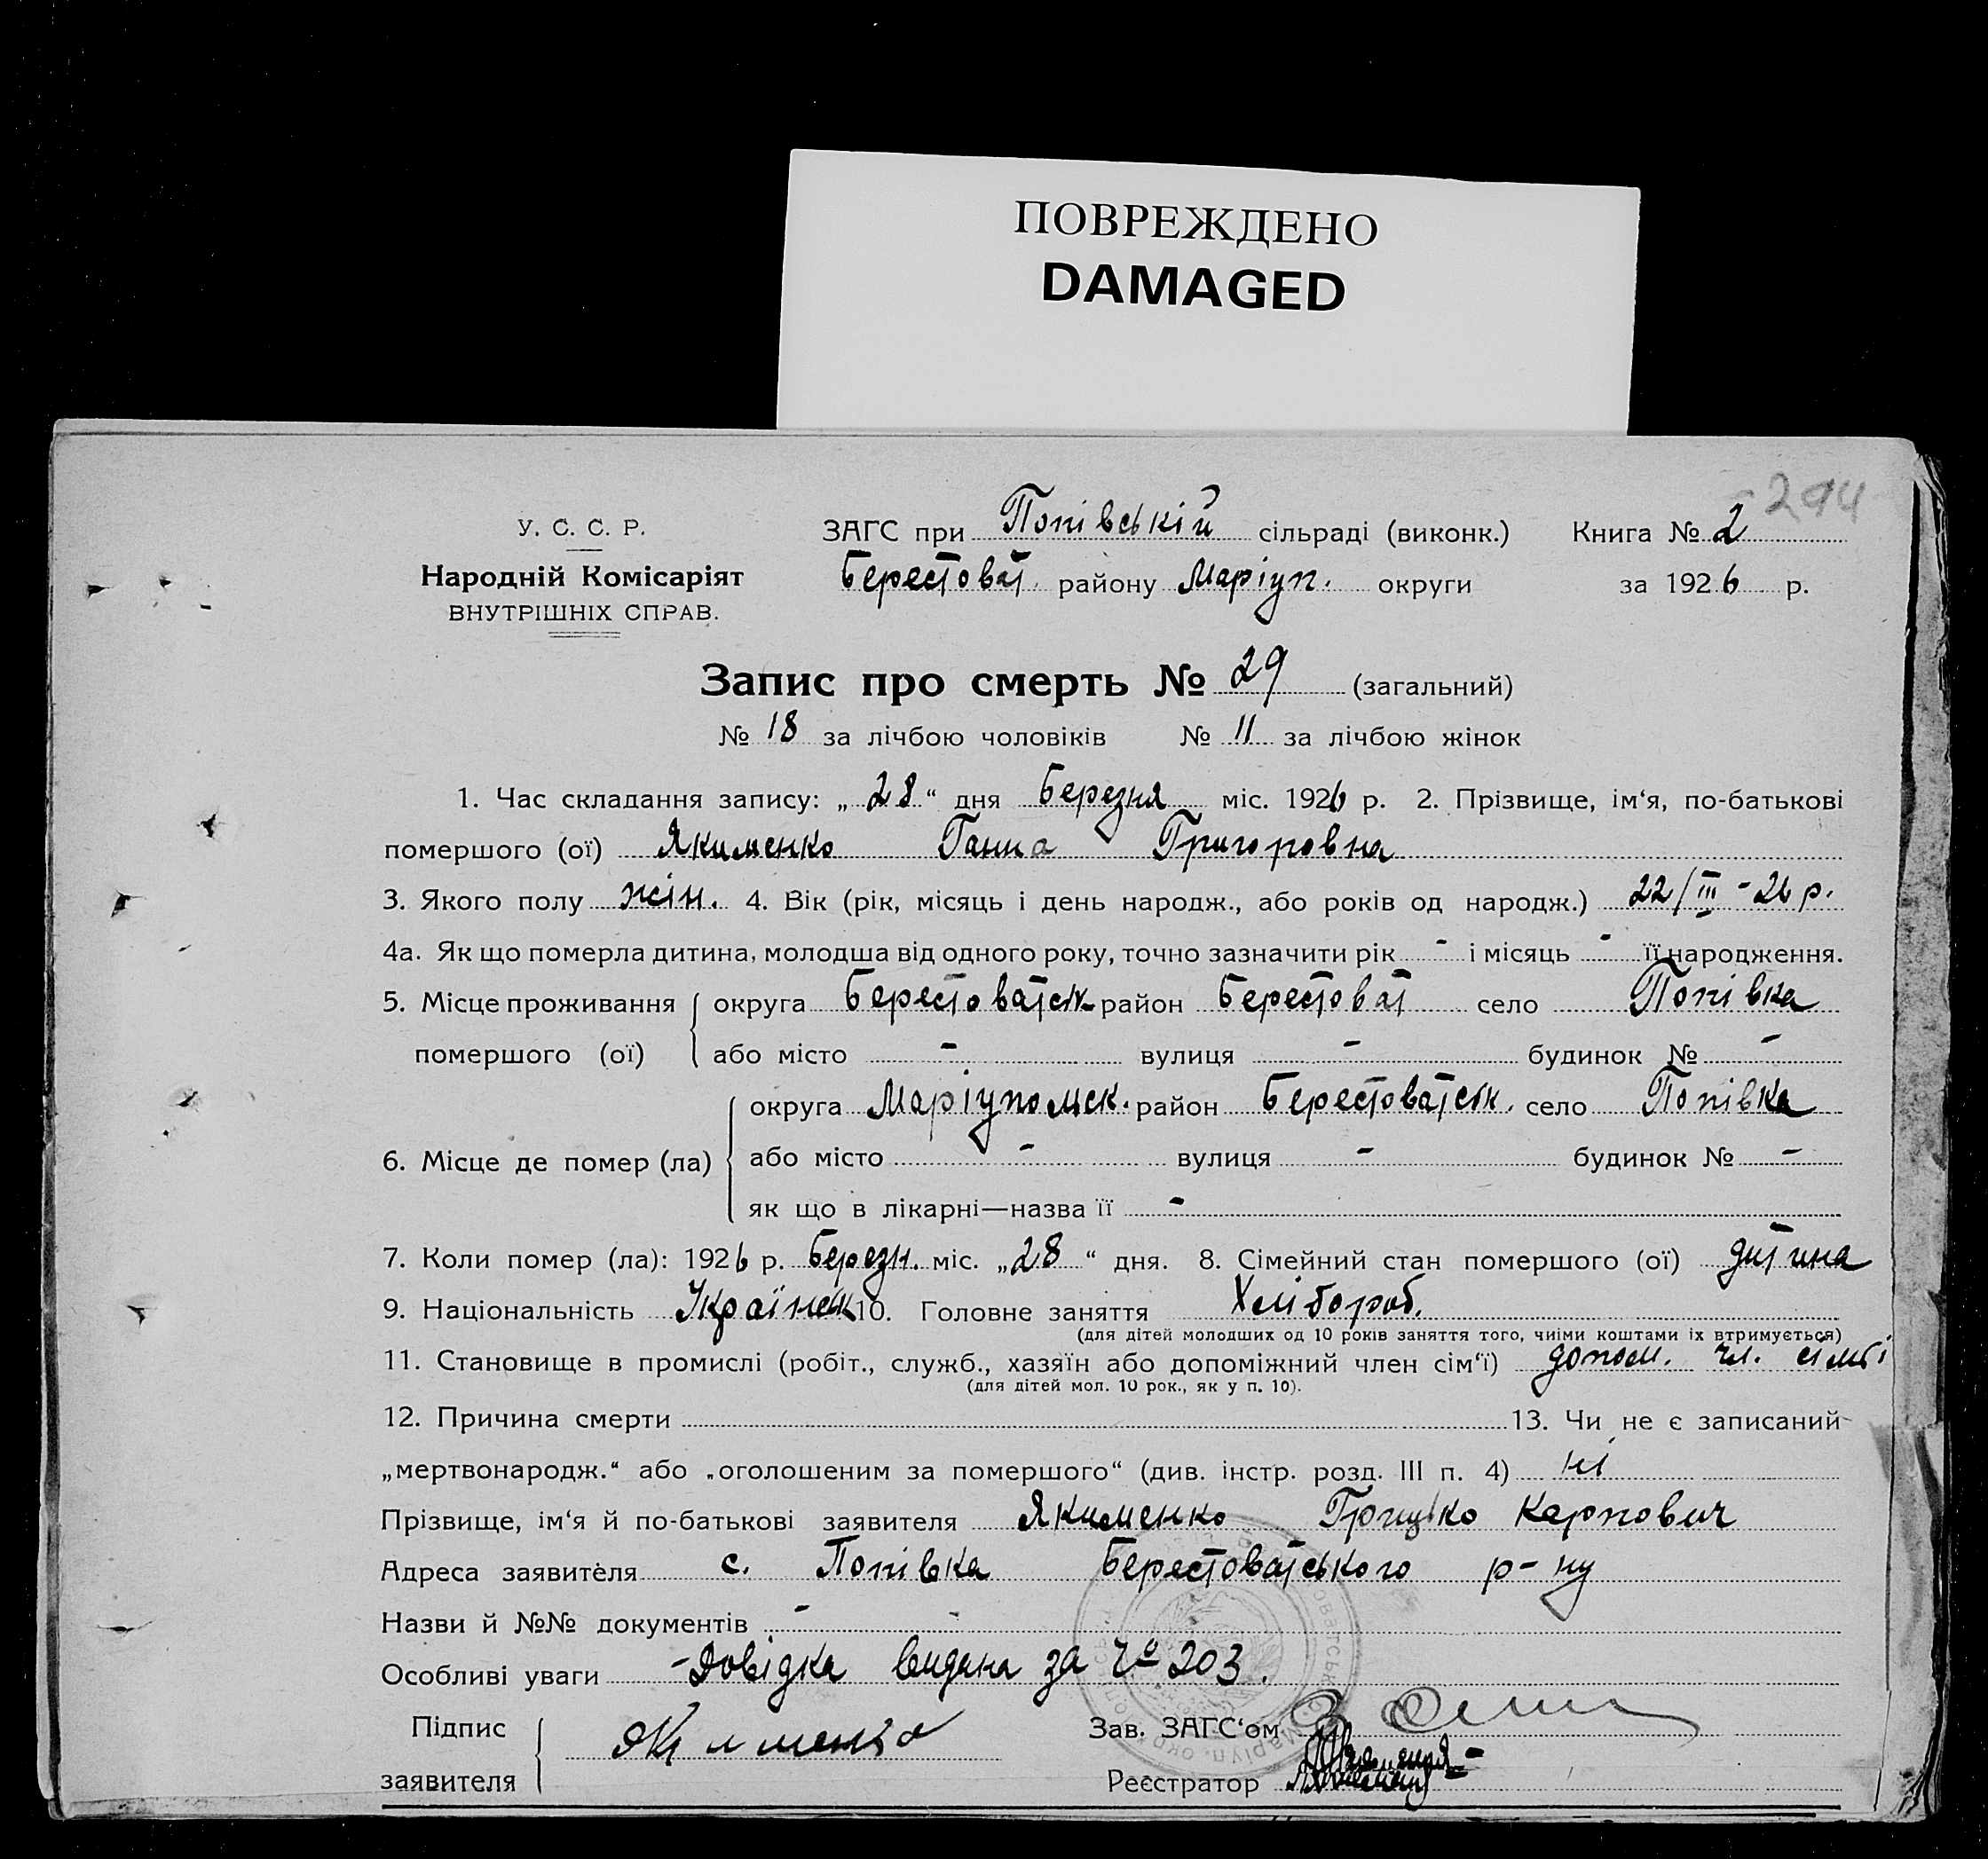 ПОВРЕЖДЕНО
DAMAGED
294
У. С. С. Р.
Народній Комісаріят
ВНУТРІШНІХ СПРАВ.
ЗАГС при Попівській сільраді (виконк.) Книга № 2
Берестоват. району Маріуп. округи за 1926 р.
Запис про смерть № 29 (загальний)
№ 18 за лічбою чоловіків № 11 за лічбою жінок
1. Час складання запису: „28“ дня Березня міс. 1926 р. 2. Прізвище, ім‘я, по-батькові
помершого (ої) Якименко Ганна Григоровна
3. Якого полу жін. 4. Вік (рік, місяць і день народж., або років од народж.) 22/III - 26 р.
4а. Як що померла дитина, молодша від одного року, точно зазначити рік - і місяць - її народження.
5. Місце проживання округа Берестоватськ район Берестоват село Попівка
помершого (ої) або місто - вулиця - будинок № -
округа Маріупольск. район Берестоватськ. село Попівка
6. Місце де помер (ла) або місто - вулиця - будинок № -
як що в лікарні—назва її -
7. Коли помер (ла): 1926 р. Березн. міс. „28“ дня. 8. Сімейний стан помершого (ої) дитина
9. Національність Українск 10. Головне заняття Хлібороб.
(для дітей молодших од 10 років заняття того, чиїми коштами їх втримується)
11. Становище в промислі (робіт., служб., хазяїн або допоміжний член сім‘ї) допом. чл. сімї
(для дітей мол. 10 рок., як у п. 10).
12. Причина смерти 13. Чи не є записаний
„мертвонародж.“ або „оголошеним за помершого“ (див. інстр. розд. III п. 4) ні
Прізвище, ім‘я й по-батькові заявителя Якименко Грицько Карпович
Адреса заявителя с. Попівка Берестоватського р-ну
Назви й №№ документів - -
Особливі уваги - Довідка видана за № 203.
Підпис заявителя Якименко
Зав. ЗАГС‘ом
Реєстратор